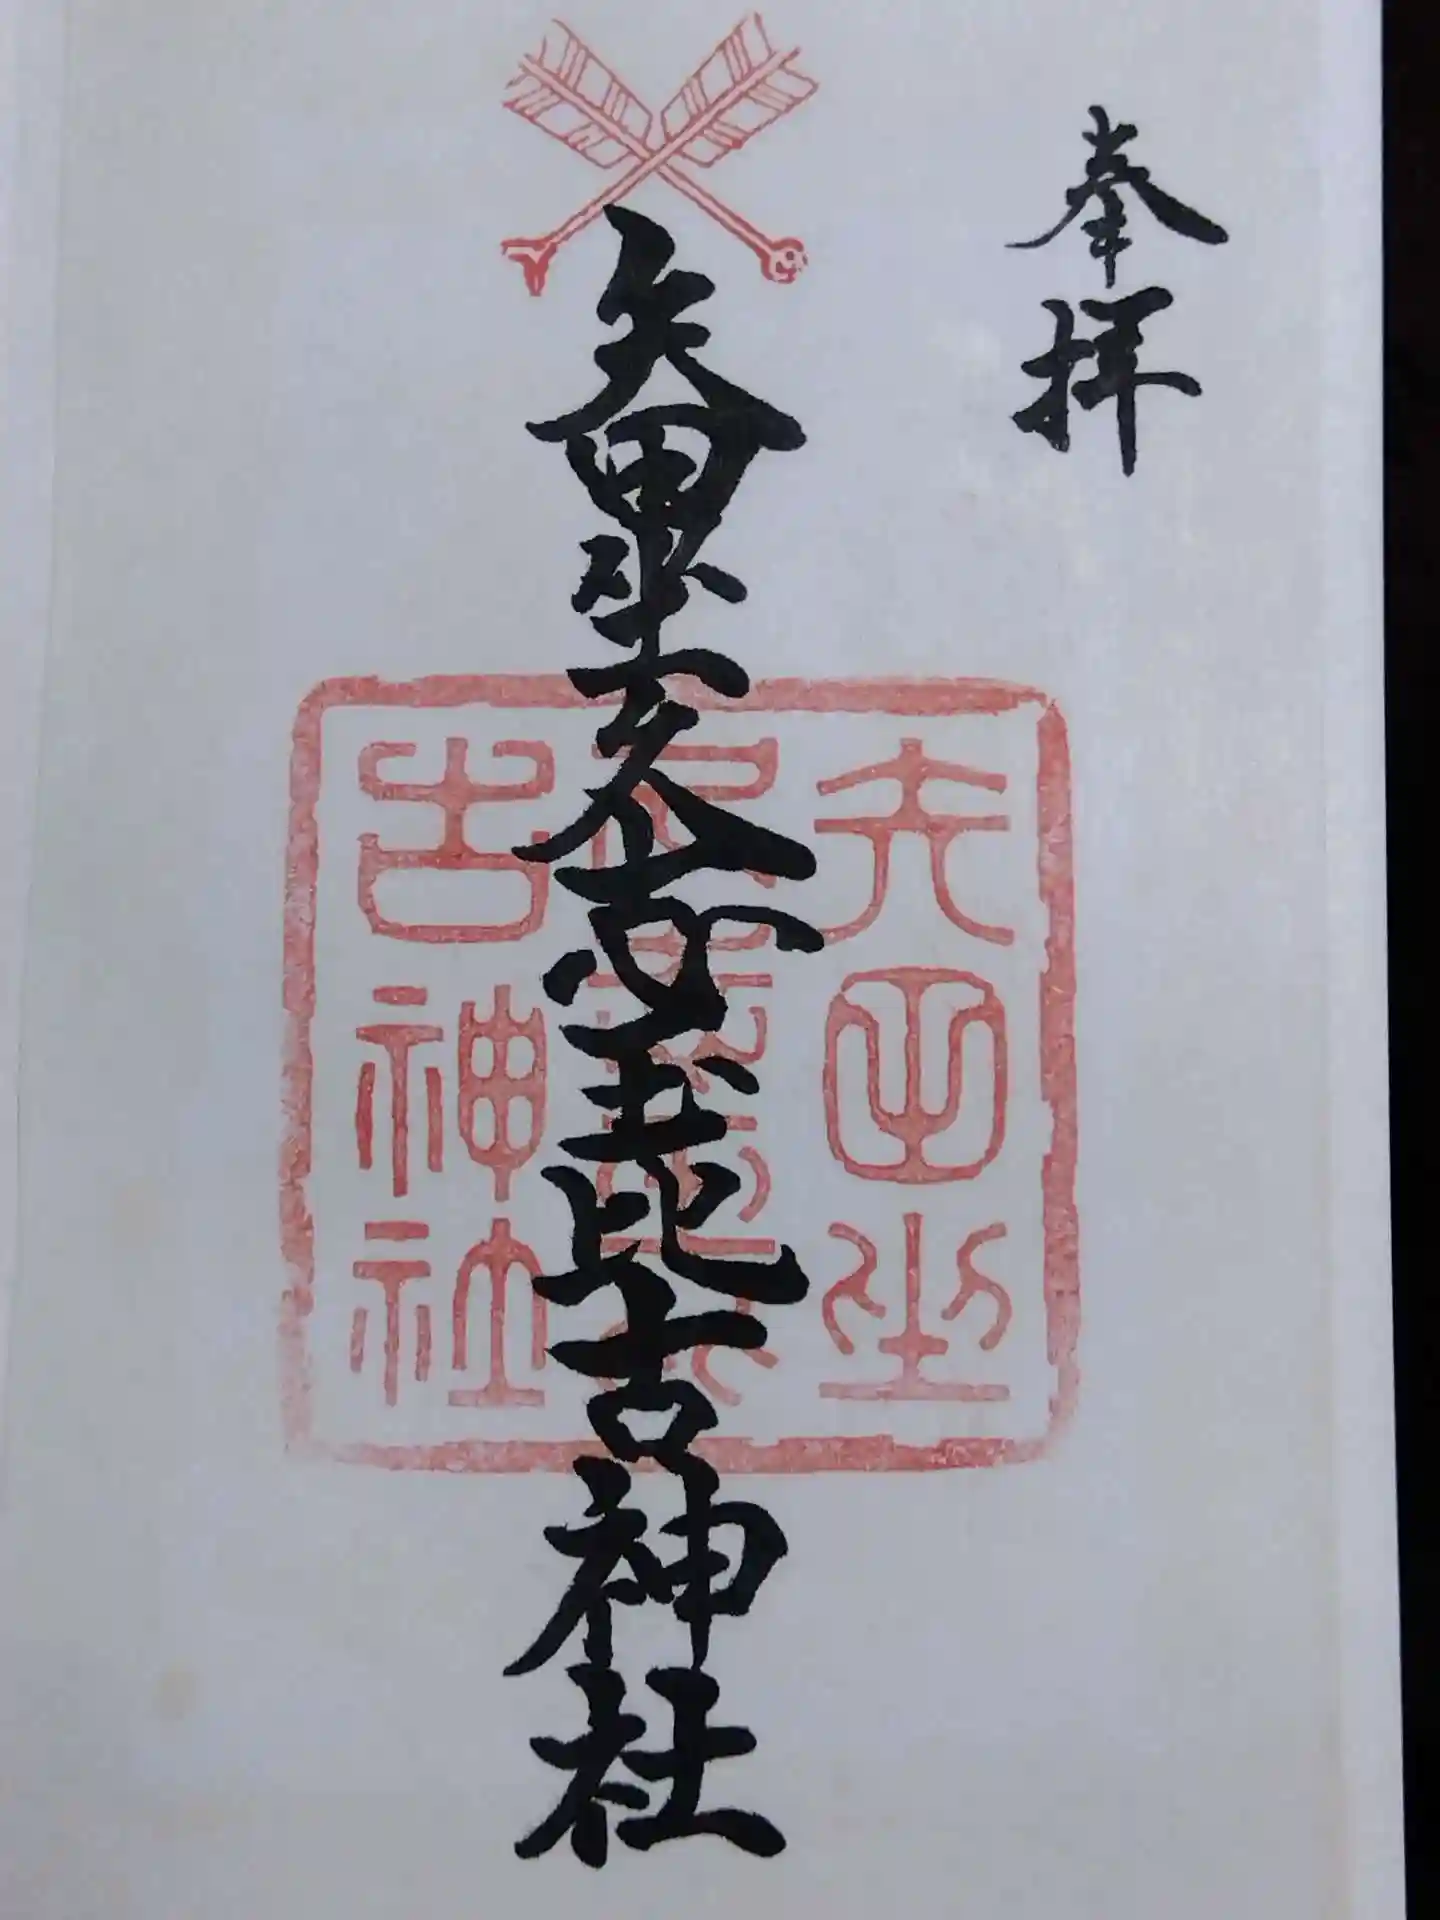 奉拝
矢田坐久志玉比古神社
矢田坐
久志玉比
古神社